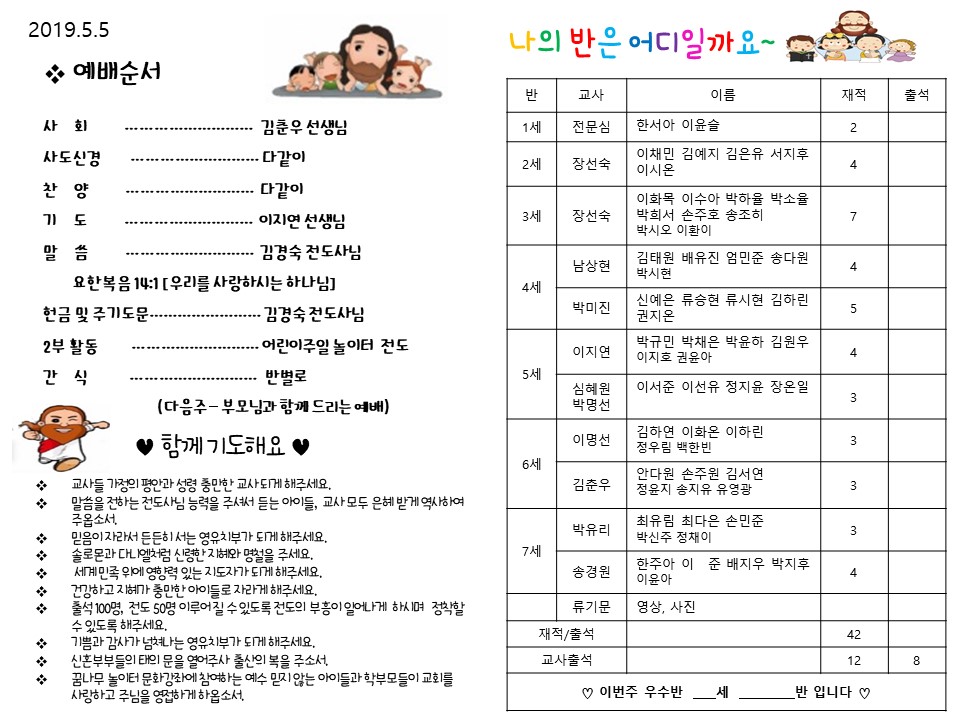 2019.5.5
❖ 예배순서
사 회 --------------------------- 김춘우 선생님
사도신경 --------------------------- 다같이
찬 양 --------------------------- 다같이
기 도 --------------------------- 이지연 선생님
말 씀 --------------------------- 김경숙 전도사님
요한복음 14:1 [우리를 사랑하시는 하나님]
헌금 및 주기도문----------------------- 김경숙 전도사님
2부 활동 --------------------------- 어린이주일 놀이터 전도
간 식 --------------------------- 반별로
(다음주 – 부모님과 함께 드리는 예배)
♥ 함께 기도해요 ♥
❖ 교사들 가정의 평안과 성령 충만한 교사 되게 해주세요.
❖ 말씀을 전하는 전도사님 능력을 주셔서 듣는 아이들, 교사 모두 은혜 받게 역사하여
주옵소서.
❖ 믿음이 자라서 든든히 서는 영유치부가 되게 해주세요.
❖ 솔로몬과 다니엘처럼 신령한 지혜와 명철을 주세요.
❖ 세계 민족 위에 영향력 있는 지도자가 되게 해주세요.
❖ 건강하고 지혜가 충만한 아이들로 자라게 해주세요.
❖ 출석 100명, 전도 50명 이루어 질 수 있도록 전도의 부흥이 일어나게 하시며 정착할
수 있도록 해주세요.
❖ 기쁨과 감사가 넘쳐나는 영유치부가 되게 해주세요.
❖ 신혼부부들의 태의 문을 열어주사 출산의 복을 주소서.
❖ 꿈나무 놀이터 문화강좌에 참여하는 예수 믿지 않는 아이들과 학부모들이 교회를
사랑하고 주님을 영접하게 하옵소서.
나의 반은 어디일까요~
반 교사 이름 재적 출석
1세 전문심 한서아 이윤슬 2
2세 장선숙 이채민 김예지 김은유 서지후 4
이시온
3세 장선숙 이화목 이수아 박하율 박소율 7
박희서 손주호 송조히
박시오 이환이
4세 남상현 김태원 배유진 엄민준 송다원 4
박시현
박미진 신예은 류승현 류시현 김하린 5
권지온
5세 이지연 박규민 박채은 박윤하 김원우 4
이지호 권윤아
심혜원 이서준 이선유 정지윤 장온일 3
박명선
6세 이명선 김하연 이화온 이하린 3
정우림 백한빈
김춘우 안다원 손주원 김서연 3
정윤지 송지유 유영광
7세 박유리 최유림 최다은 손민준 3
박신주 정채이
송경원 한주아 이 준 배지우 박지후 4
이윤아
류기문 영상, 사진
재적/출석 42
교사출석 12 8
♡ 이번주 우수반 ___세 ________반 입니다 ♡